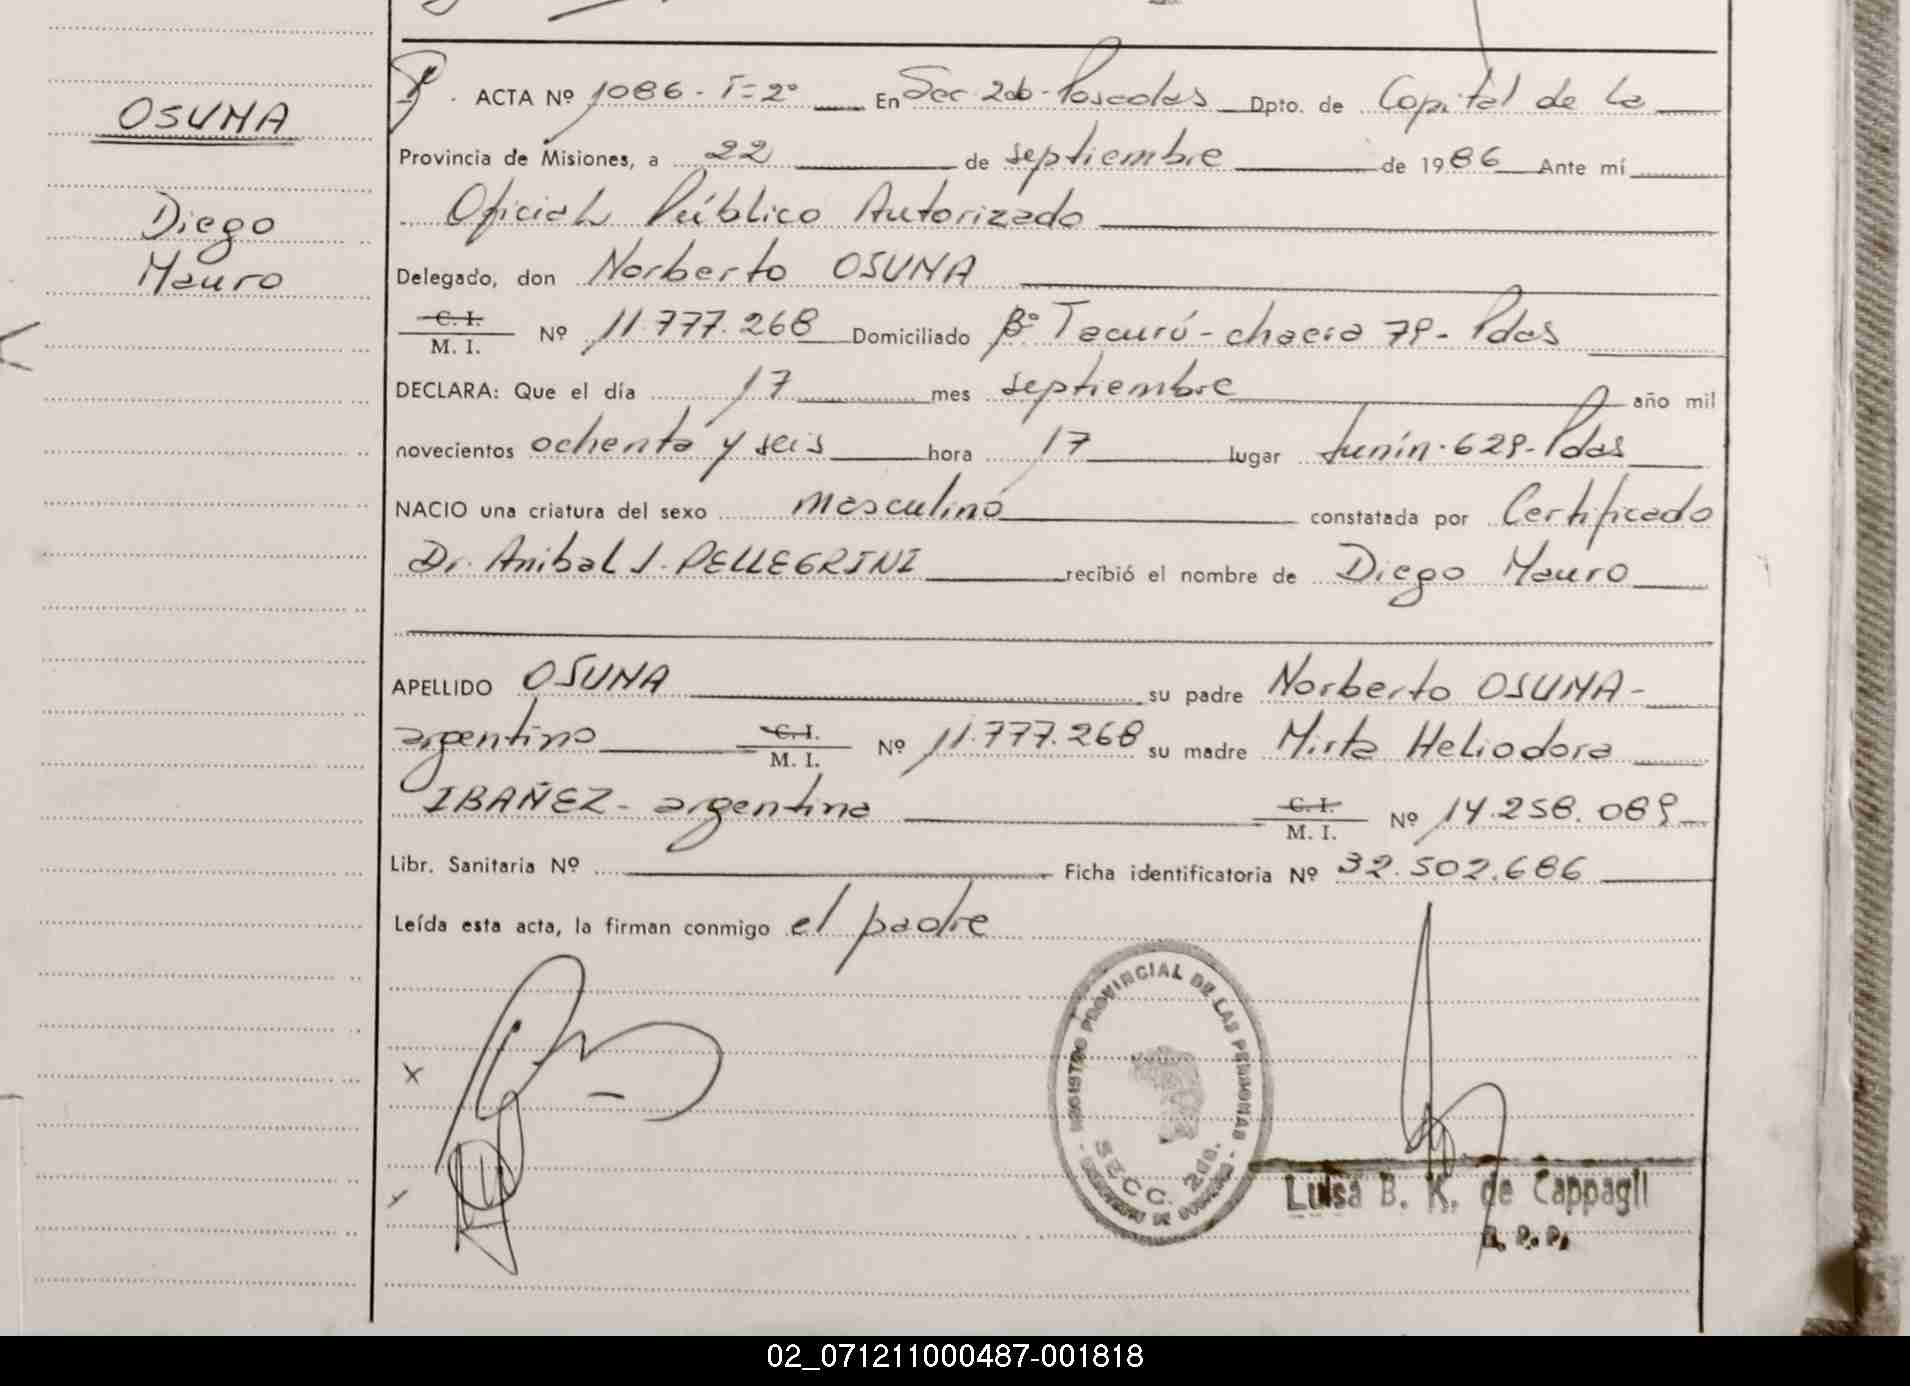 OSUNA
Diego
Mauro
ACTA Nº 1086 - T=2º En Sec 2da - Posadas Dpto. de Capital de la
Provincia de Misiones, a 22 de septiembre de 1986 Ante mí
Oficial Público Autorizado
Delegado, don Norberto OSUNA
C. I.
M. I. Nº 11.777.268 Domiciliado Bº Tacurú - chacra 79 - Pdas
DECLARA: Que el día 17 mes septiembre año mil
novecientos ochenta y seis hora 17 lugar Junín - 629 - Pdas
NACIO una criatura del sexo masculino constatada por Certificado
Dr. Anibal J. PELLEGRINI recibió el nombre de Diego Mauro
APELLIDO OSUNA su padre Norberto OSUNA -
argentino C. I. M. I. Nº 11.777.268 su madre Mirta Heliodora
IBAÑEZ - argentina C. I. M. I. Nº 14.258.089
Libr. Sanitaria Nº Ficha identificatoria Nº 32.502.686
Leída esta acta, la firman conmigo el padre
REGISTRO PROVINCIAL DE LAS PERSONAS
SECC. 2da.
Luisa B. K. de Cappagli
02_071211000487-001818